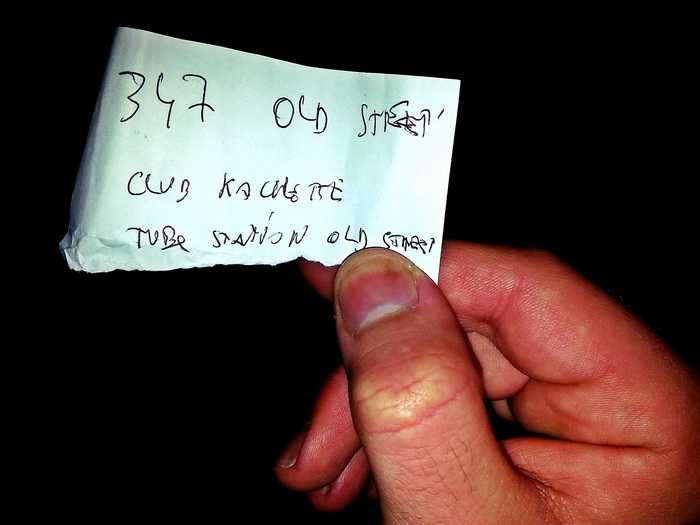 347 OLD STREET
CLUB KACHETTE
TUBE STATION OLD STREET